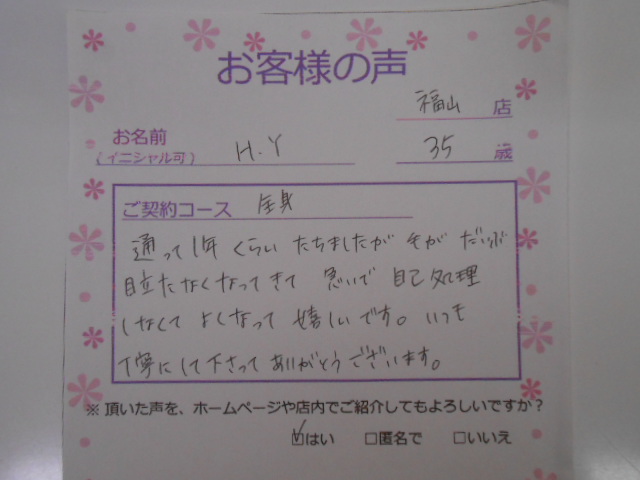 お客様の声
福山 店
お名前
(イニシャル可) H.Y 35 歳
ご契約コース 全身
通って1年くらいたちましたが毛がだいぶ
目立たなくなってきて 急いで自己処理
しなくてよくなって嬉しいです。いつも
丁寧にして下さってありがとうございます。
※頂いた声を、ホームページや店内でご紹介してもよろしいですか?
☑はい □匿名で □いいえ